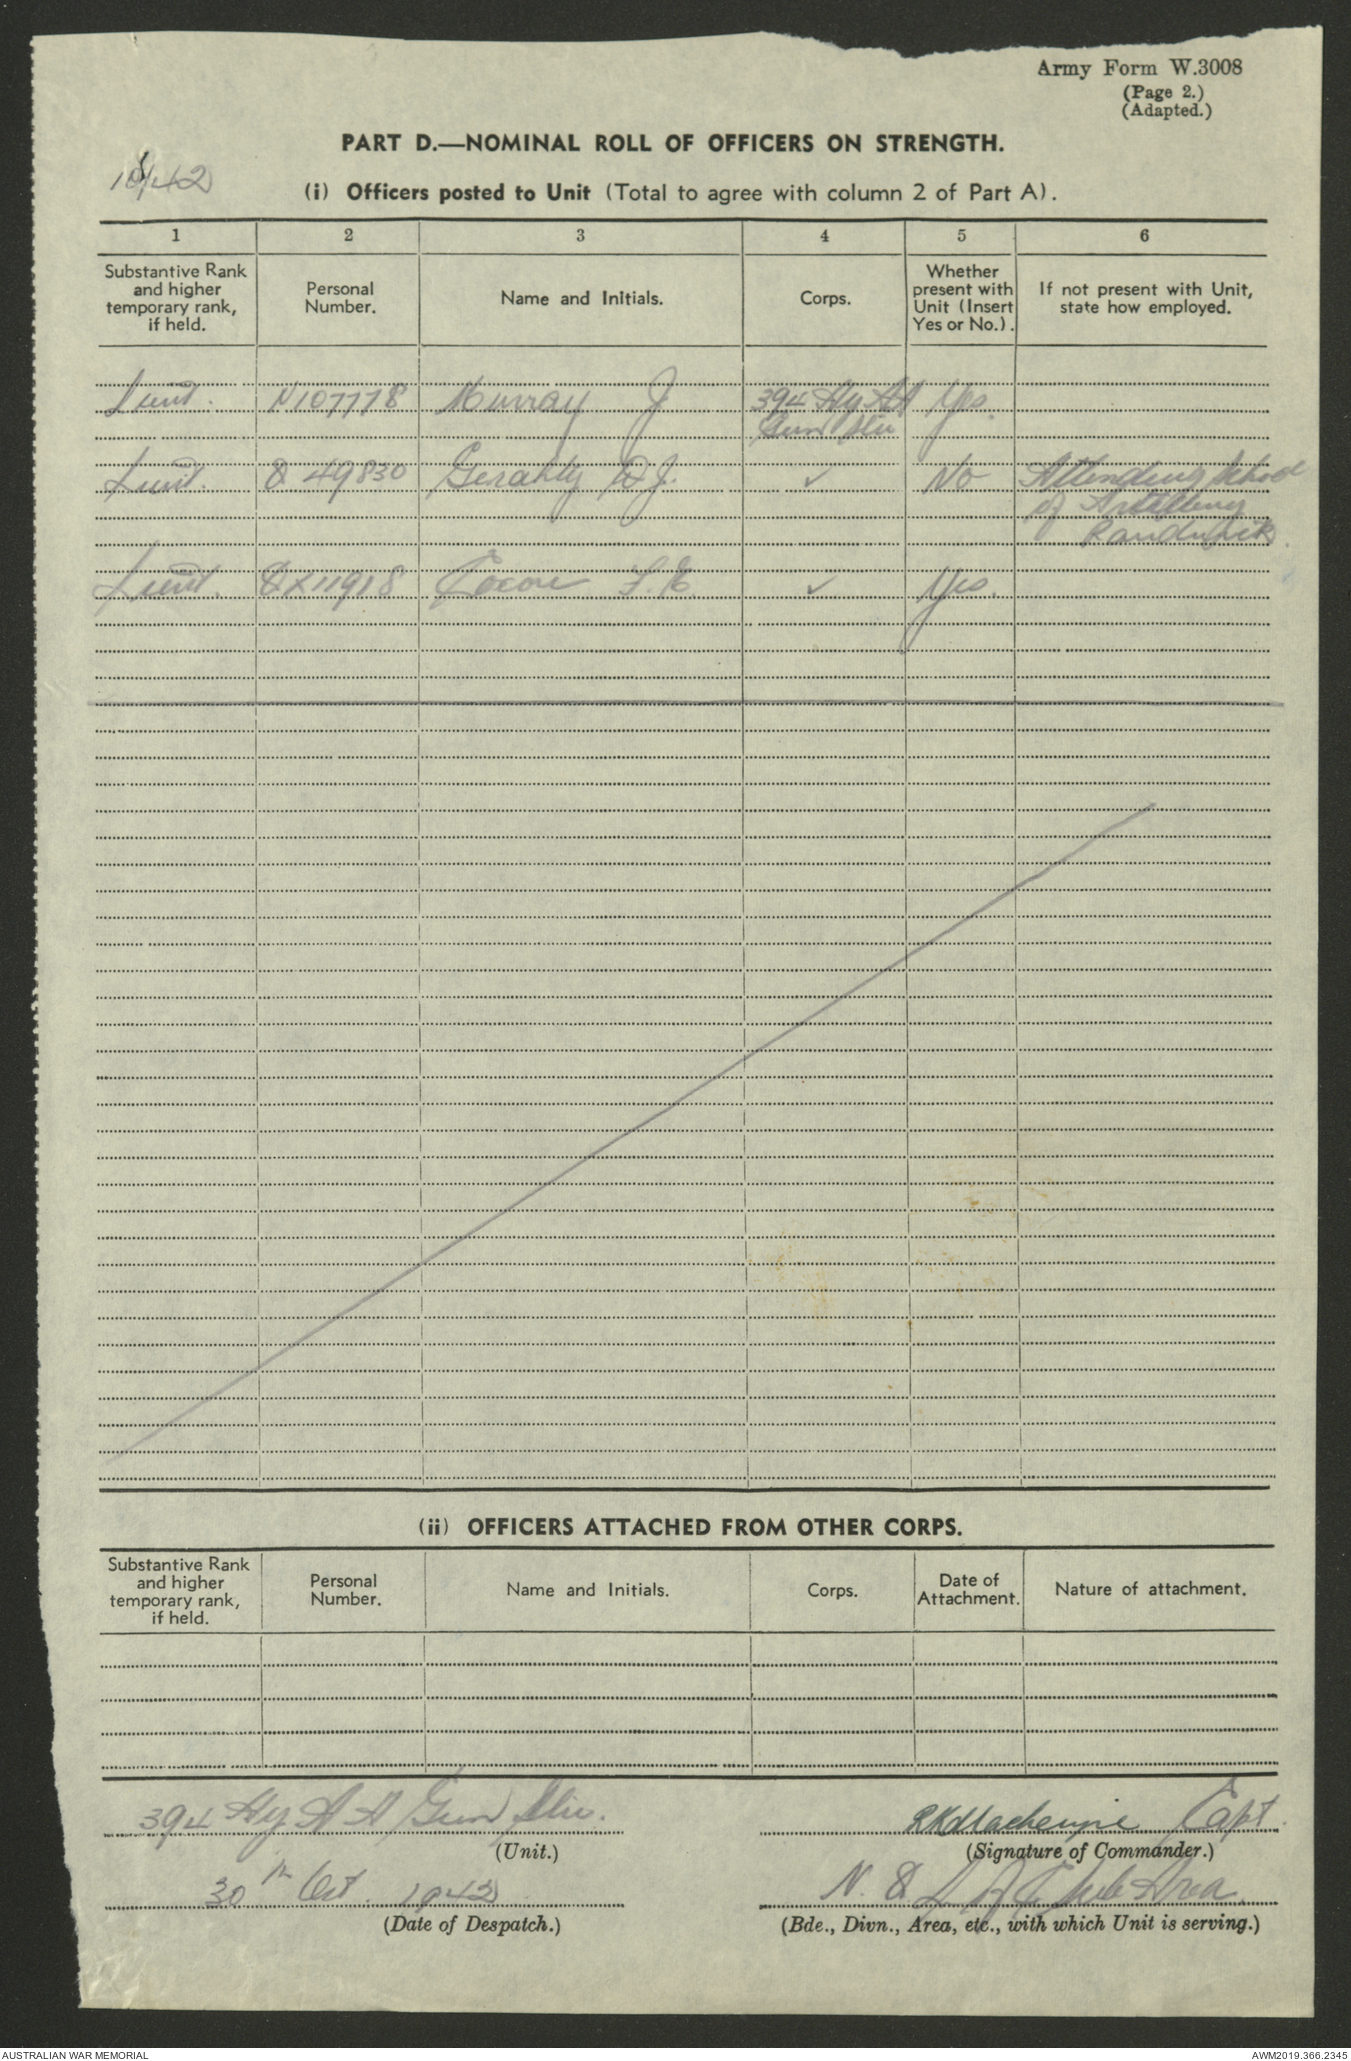 Army Form W.3008
(Page 2.)
(Adapted.)
PART D.—NOMINAL ROLL OF OFFICERS ON STRENGTH.
(i) Officers posted to Unit (Total to agree with column 2 of Part A).
1 2 3 4 5 6
Substantive Rank and higher temporary rank, if held. Personal Number. Name and Initials. Corps. Whether present with Unit (Insert Yes or No.). If not present with Unit, state how employed.
Lieut. N107778 Murray J 394 Hy AA Yes.
Gun Stn
Lieut. Q 49830 Gerahty D.J. ✓ No Attending School
of Artillery
Randwick.
Lieut. QX11918 F.E. ✓ Yes.
(ii) OFFICERS ATTACHED FROM OTHER CORPS.
Substantive Rank and higher temporary rank, if held. Personal Number. Name and Initials. Corps. Date of Attachment. Nature of attachment.
394 Hy A A Gun Stn. Capt.
(Unit.) (Signature of Commander.)
30th Oct. 1942 N. Q L of C Sub Area
(Date of Despatch.) (Bde., Divn., Area, etc., with which Unit is serving.)
AUSTRALIAN WAR MEMORIAL AWM2019.366.2345